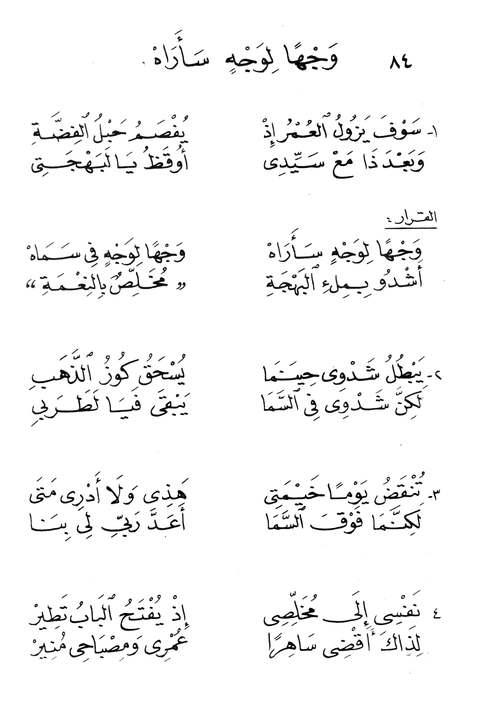 ٨٤ وَجْهًا لِوَجْهٍ سَأَرَاهْ .
١- سَوْفَ يَزُولُ العُمْرُ إِذْ يُفْصَمُ حَبْلُ الفِضَّةِ
وَبَعْدَ ذَا مَعْ سَيِّدِى أُوقَظُ يَا لَبَهْجَتِى
القرار:
وَجْهًا لِوَجْهٍ سَأَرَاهْ وَجْهًا لِوَجْهٍ فِى سَمَاهْ
أَشْدُو بِمِلءِ البَهْجَةِ « مُخَلِّصٌ بِالنِعْمَةِ »
٢- يَبْطُلُ شَدْوِى حِينَمَا يُسْحَقُ كُوزُ الذَّهَبِ
لَكِنَّ شَدْوِى فِى السَّمَا يَبْقَى فَيَا لَطَرَبِي
٣- تُنْقَضُ يَوْمًا خَيْمَتِى هَذِى وَلَا أَدْرِى مَتَى
لَكِنَّمَا فَوْقَ السَّمَا أَعَدَّ رَبِّي لِى بِنَا
٤ نَفْسِى إِلَى مُخَلِّصِى إِذْ يُفْتَحُ البَابُ تَطِيرْ
لِذَاكَ أَقْضِى سَاهِرًا عُمْرِى وَمِصْبَاحِى مُنِيرْ